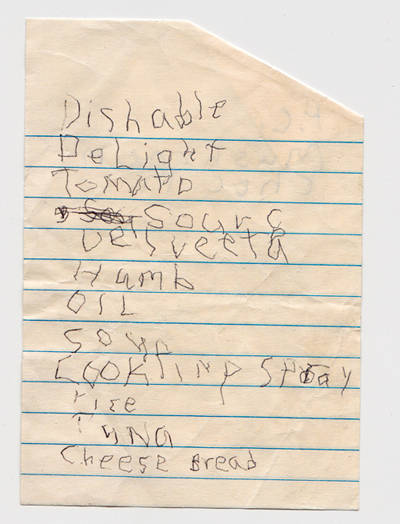 Dishable
DeLight
Tomato
Sourc
Velsveeta
Hamb
OIL
soup
Cooking Spray
rice
Tuna
Cheese Bread